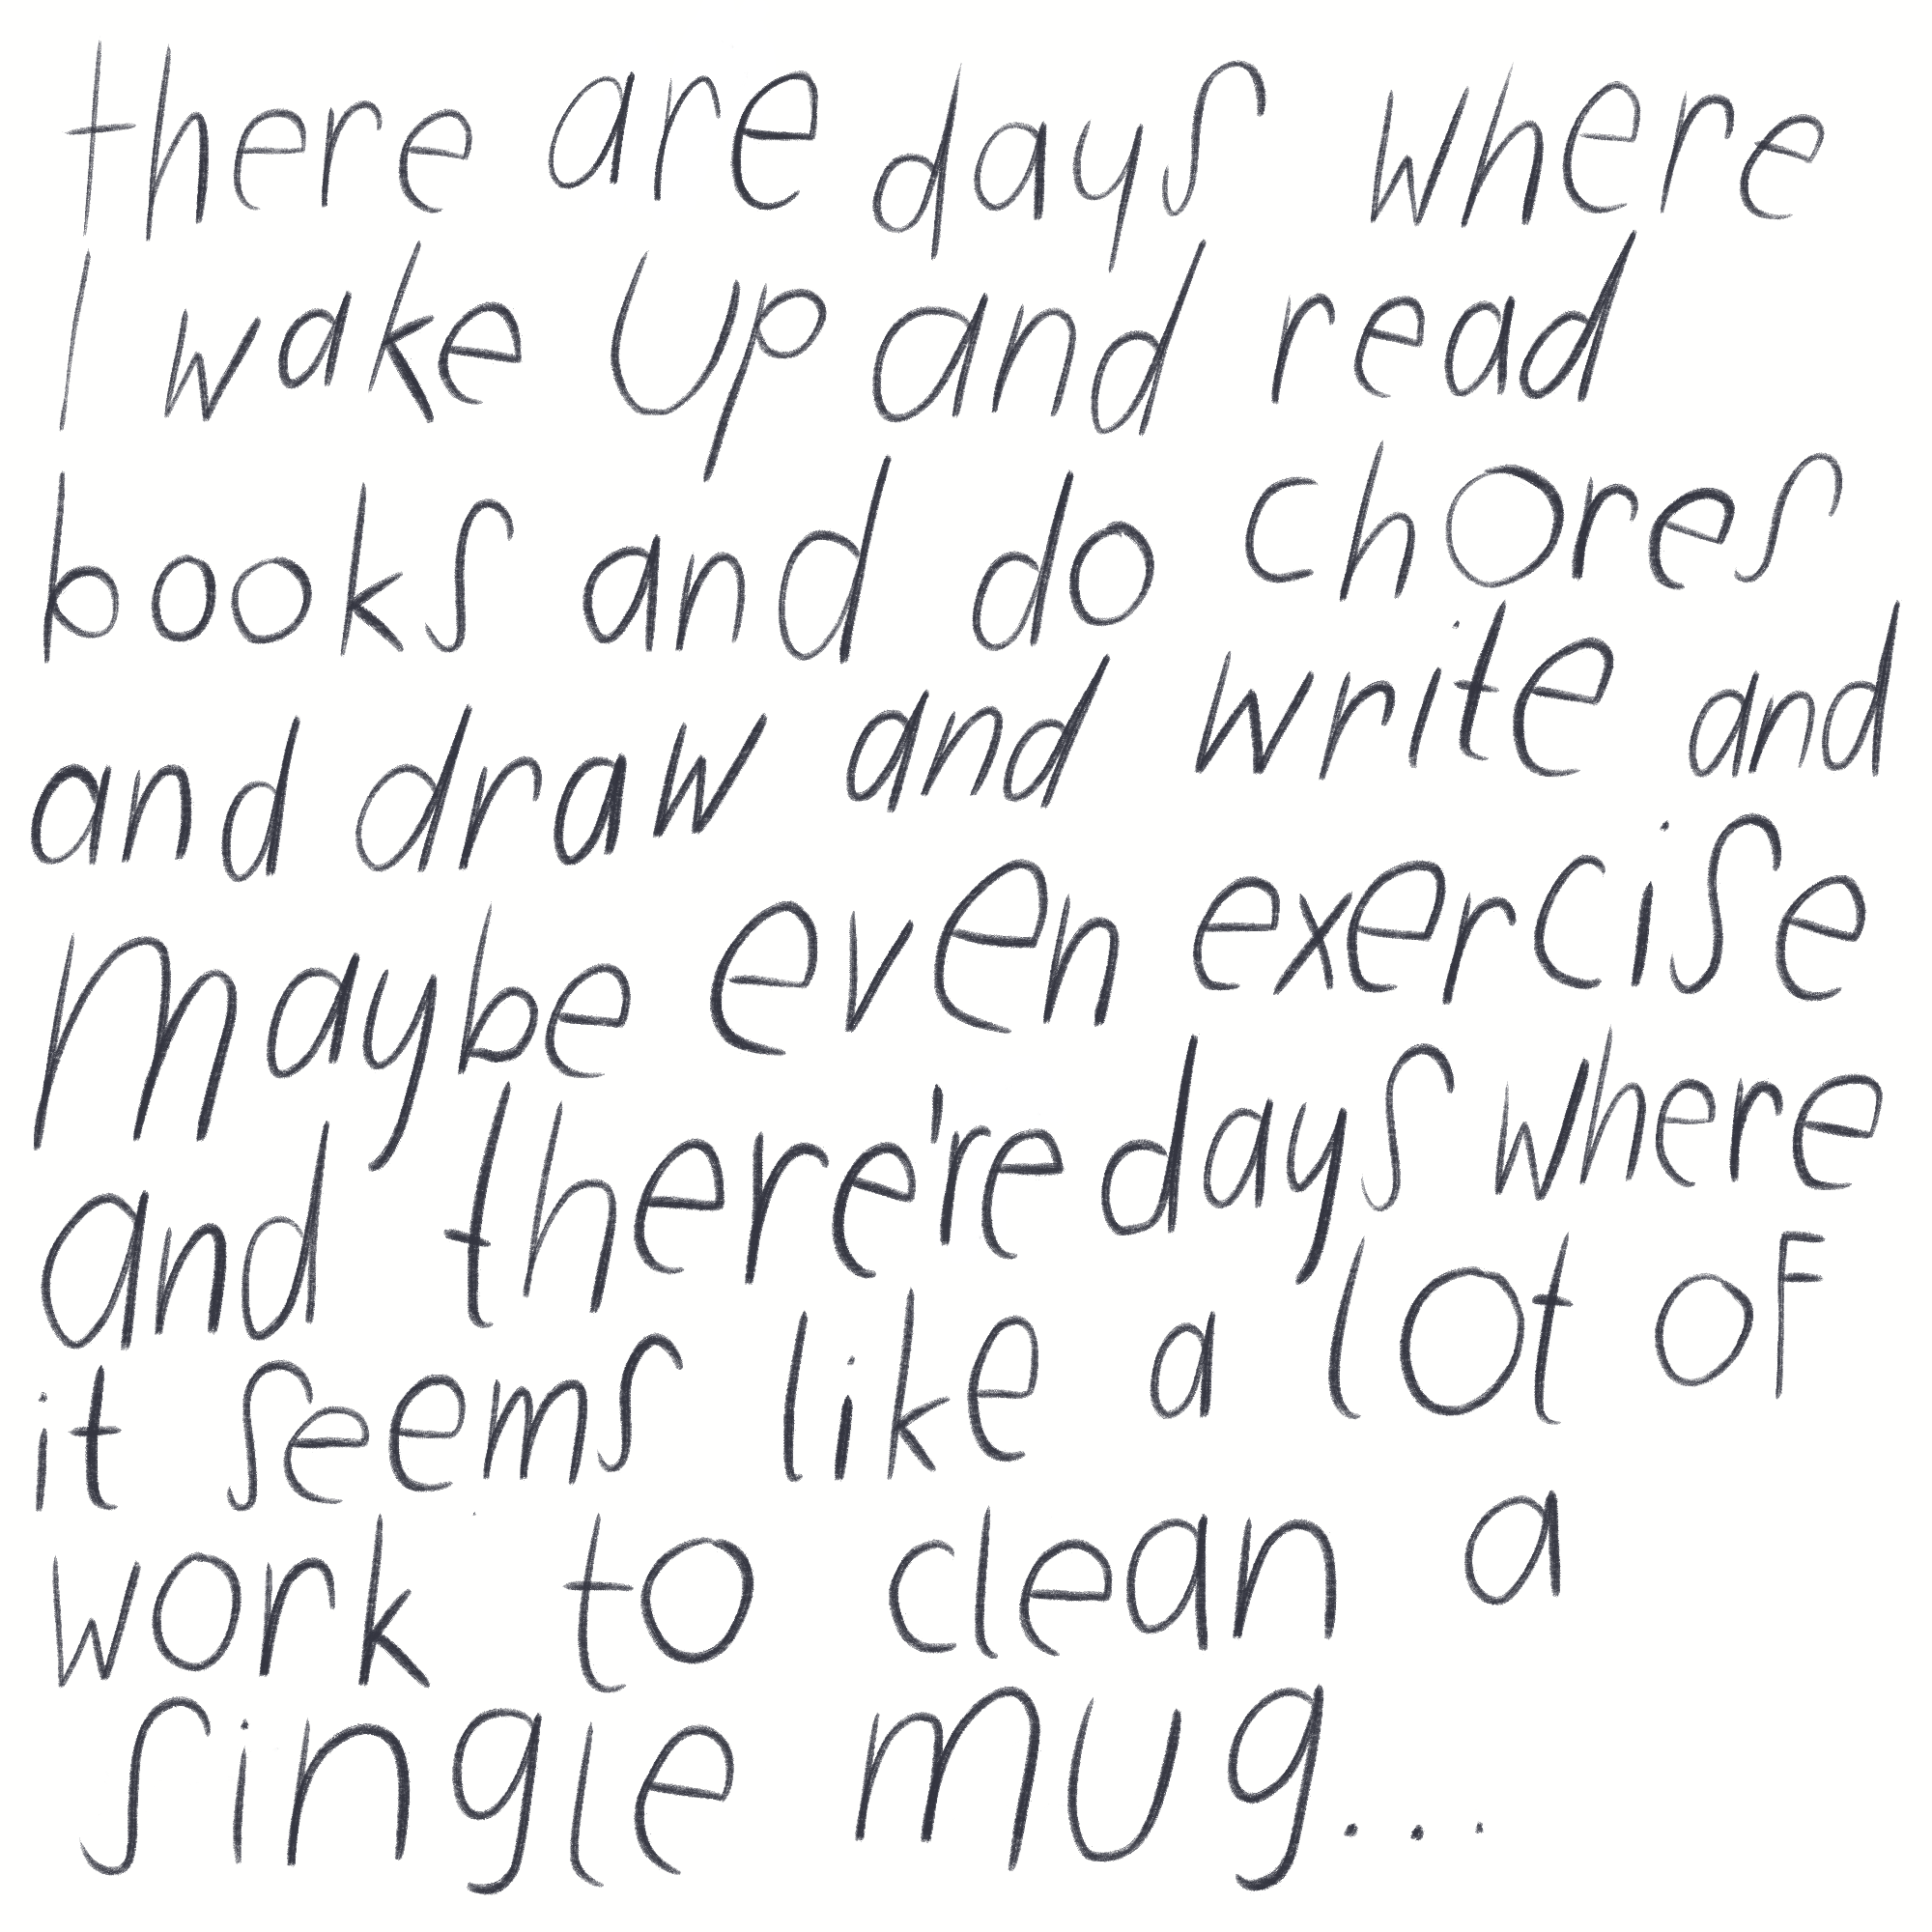 there are days where
I wake up and read
books and do chores
and draw and write and
maybe even exercise
and there're days where
it seems like a lot of
work to clean a
single mug...